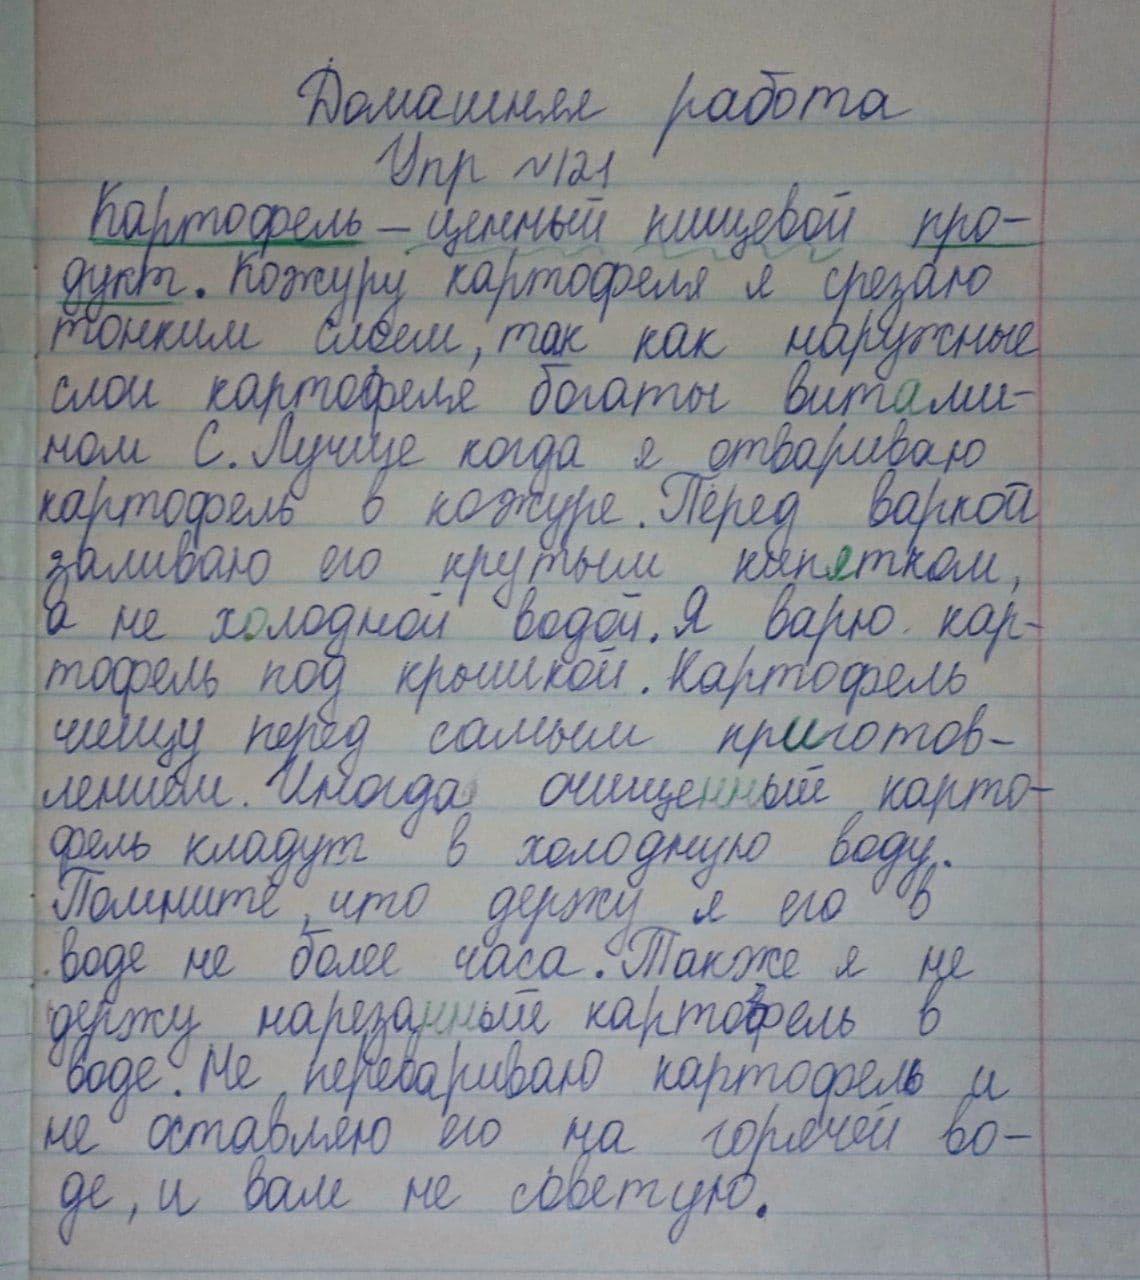 Домашняя работа
Упр №121
Картофель – ценный пищевой про-
дукт. Кожуру картофеля я срезаю
тонким слоем, так как наружные
слои картофеля богаты витами-
ном С. Лучше когда я отвариваю
картофель в кожуре. Перед варкой
заливаю его крутым кипятком,
а не холодной водой. Я варю кар-
тофель под крышкой. Картофель
чищу перед самым приготов-
лением. Иногда очищенный карто-
фель кладут в холодную воду.
Помните, что держу я его в
воде не более часа. Также я не
держу нарезанный картофель в
воде. Не перевариваю картофель и
не оставляю его на горячей во-
де, и вам не советую.